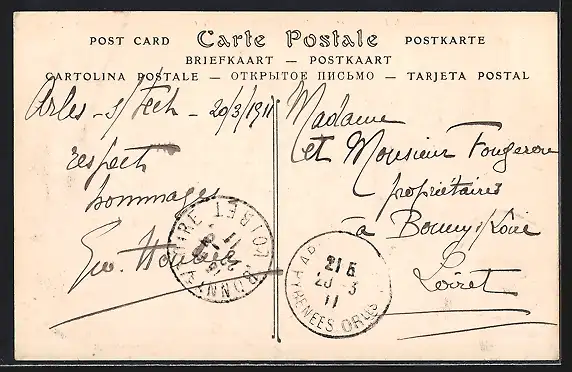 POST CARD Carte Postale POSTKARTE
BRIEFKAART — POSTKAART
CARTOLINA POSTALE — ОТКРЫТОЕ ПИСЬМО — TARJETA POSTAL
Arles-s/Tech - 20/3/1911
respect
hommages
Geo.
Madame
et Monsieur Fougeron
propriétaires
à Bonny s/Loire
Loiret
BONNY LOIRE LOIRET
11
21 5
20 -3
11
PYRENEES ORles